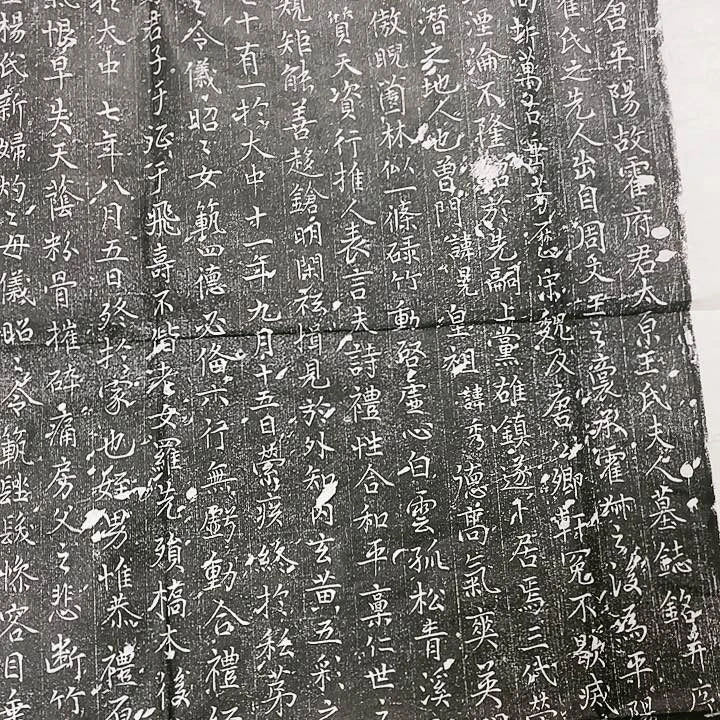 唐平陽故霍府君太原王氏夫人墓誌銘并序
霍氏之先人出自周文王之裔承霍州之後為平陽
宗魏及唐公卿軒冕不歇
湮淪不隆 於先嗣上黨雄鎮遂卜居焉三代
潛之地人也曾門諱晃皇祖諱秀德高氣爽英
傲睨園林似一條碌竹動啓虛心白雲孤松青溪
質天資行推人表言夫詩禮性合和平稟仁世之
規矩能善趍鎗明閑 揖見於外知內玄黃五彩之
七十有一於大中十一年九月十五日縈疾終於私苐
之令儀昭〻女範四德必俻六行無虧動合禮
君子乎 于飛壽不偕老女羅先殞橋木後
於大中七年八月五日終於家也姪男惟恭禮
恨早失天蔭粉骨摧碎痛房父之悲斷竹
楊氏新婦灼〻母儀昭〻令範 容目